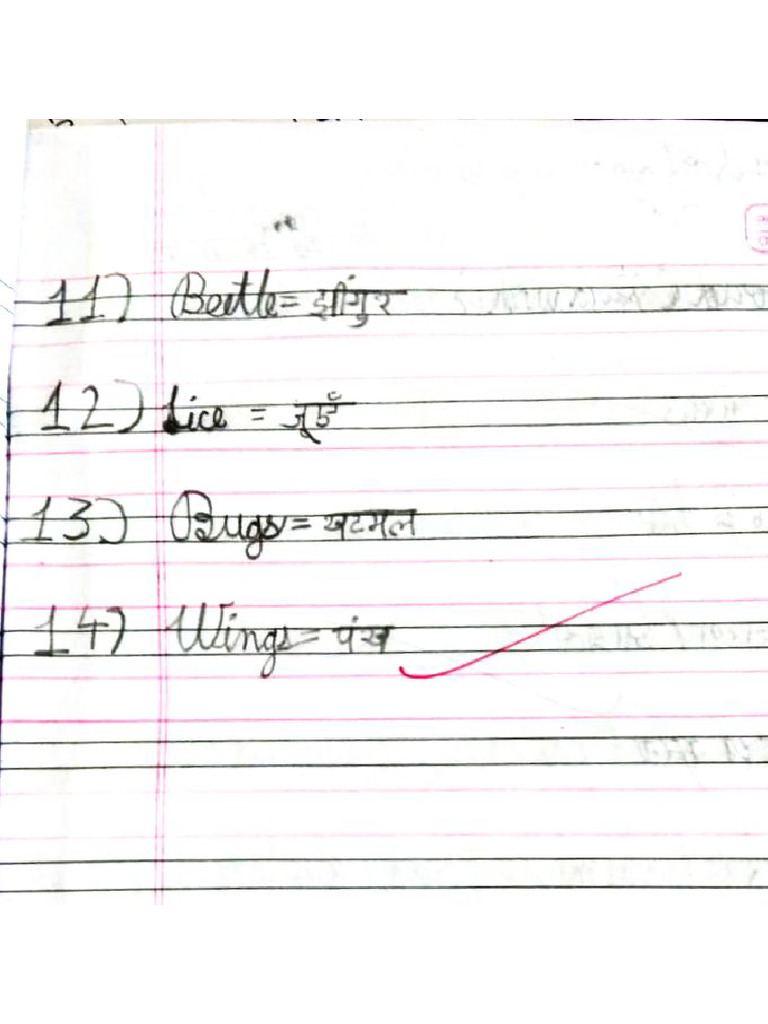 11) Beetle = झींगुर
12) Lice = जूईं
13) Bugs = खटमल
14) Wings = पंख